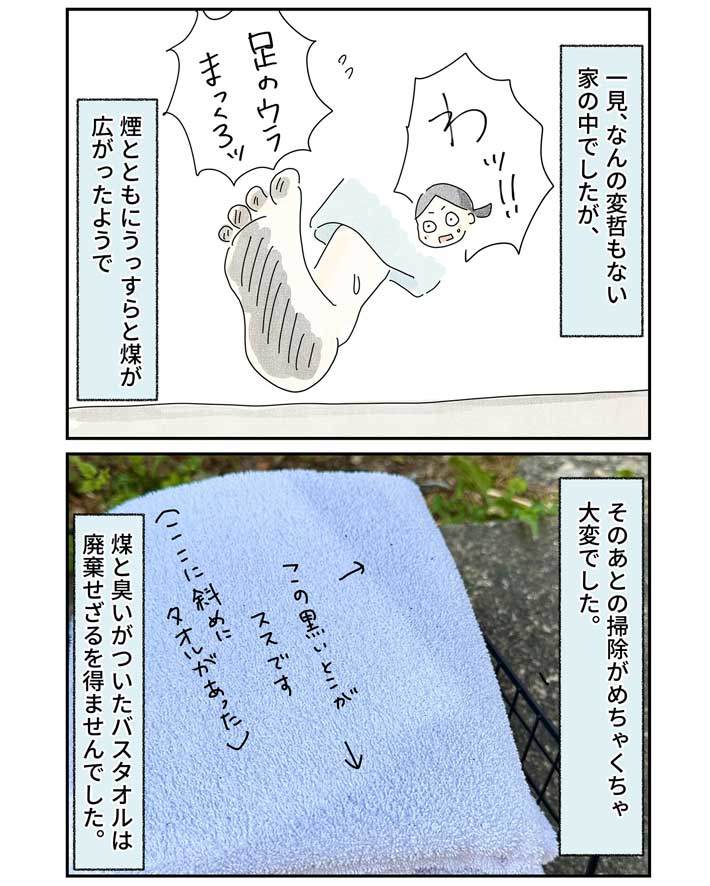 一見、なんの変哲もない
家の中でしたが、
わッ!!
足のウラ
まっくろッ
煙とともにうっすらと煤が
広がったようで
そのあとの掃除がめちゃくちゃ
大変でした。
この黒いとこが
ススです
(ここに斜めに
タオルがあった)
煤と臭いがついたバスタオルは
廃棄せざるを得ませんでした。